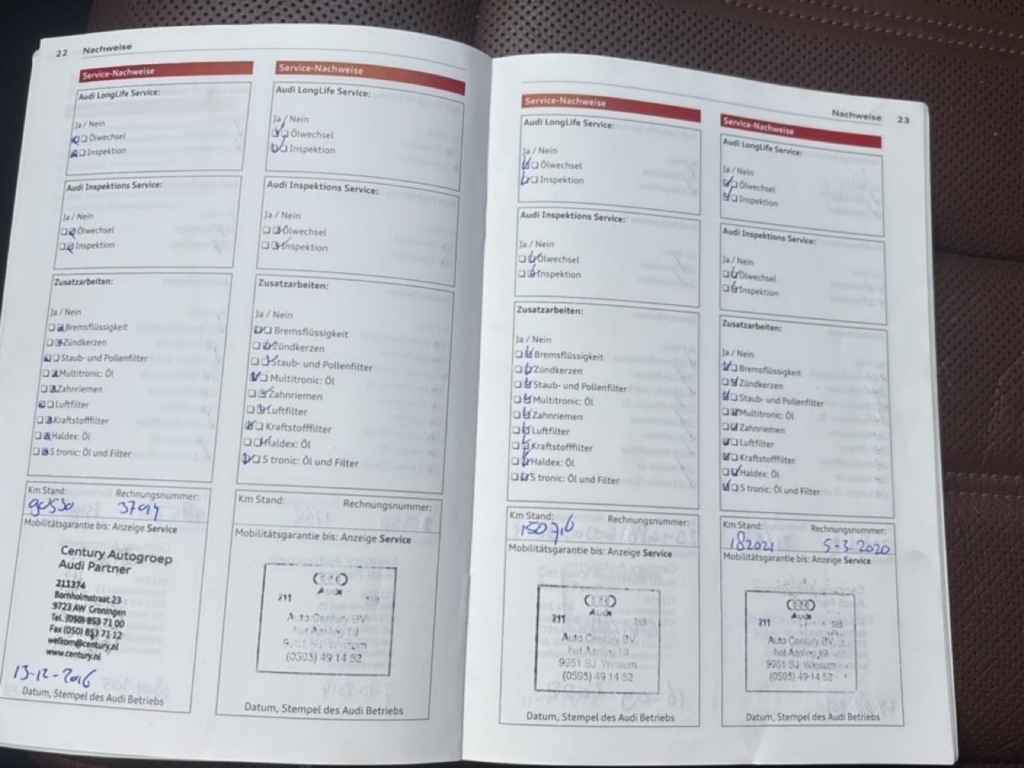 22 Nachweise
Service-Nachweise
Audi LongLife Service:
Ja / Nein
Ölwechsel
Inspektion
Audi Inspektions Service:
Ja / Nein
Ölwechsel
Inspektion
Zusatzarbeiten:
Ja / Nein
Bremsflüssigkeit
Zündkerzen
Staub- und Pollenfilter
Multitronic: Öl
Zahnriemen
Luftfilter
Kraftstofffilter
Haldex: Öl
S tronic: Öl und Filter
Km Stand: Rechnungsnummer:
90530
Mobilitätsgarantie bis: Anzeige Service
Century Autogroep
Audi Partner
211374
Bornholmstraat 23
9723 AW Groningen
Tel. (050) 853 71 00
Fax (050) 853 71 12
welkom@century.nl
www.century.nl
13-12-2016
Datum, Stempel des Audi Betriebs
Service-Nachweise
Audi LongLife Service:
Ja / Nein
Ölwechsel
Inspektion
Audi Inspektions Service:
Ja / Nein
Ölwechsel
Inspektion
Zusatzarbeiten:
Ja / Nein
Bremsflüssigkeit
Zündkerzen
Staub- und Pollenfilter
Multitronic: Öl
Zahnriemen
Luftfilter
Kraftstofffilter
Haldex: Öl
S tronic: Öl und Filter
Km Stand: Rechnungsnummer:
Mobilitätsgarantie bis: Anzeige Service
Audi
211
Auto Century BV
het Aanleg 19
9951 SJ Winsum
(0595) 49 14 52
Datum, Stempel des Audi Betriebs
Nachweise 23
Service-Nachweise
Audi LongLife Service:
Ja / Nein
Ölwechsel
Inspektion
Audi Inspektions Service:
Ja / Nein
Ölwechsel
Inspektion
Zusatzarbeiten:
Ja / Nein
Bremsflüssigkeit
Zündkerzen
Staub- und Pollenfilter
Multitronic: Öl
Zahnriemen
Luftfilter
Kraftstofffilter
Haldex: Öl
S tronic: Öl und Filter
Km Stand: Rechnungsnummer:
Mobilitätsgarantie bis: Anzeige Service
Audi
211
Auto Century BV
het Aanleg 19
9951 SJ Winsum
(0595) 49 14 52
Datum, Stempel des Audi Betriebs
Service-Nachweise
Audi LongLife Service:
Ja / Nein
Ölwechsel
Inspektion
Audi Inspektions Service:
Ja / Nein
Ölwechsel
Inspektion
Zusatzarbeiten:
Ja / Nein
Bremsflüssigkeit
Zündkerzen
Staub- und Pollenfilter
Multitronic: Öl
Zahnriemen
Luftfilter
Kraftstofffilter
Haldex: Öl
S tronic: Öl und Filter
Km Stand: Rechnungsnummer:
182021 5-3-2020
Mobilitätsgarantie bis: Anzeige Service
Audi
211
Auto Century BV
het Aanleg 19
9951 SJ Winsum
(0595) 49 14 52
Datum, Stempel des Audi Betriebs